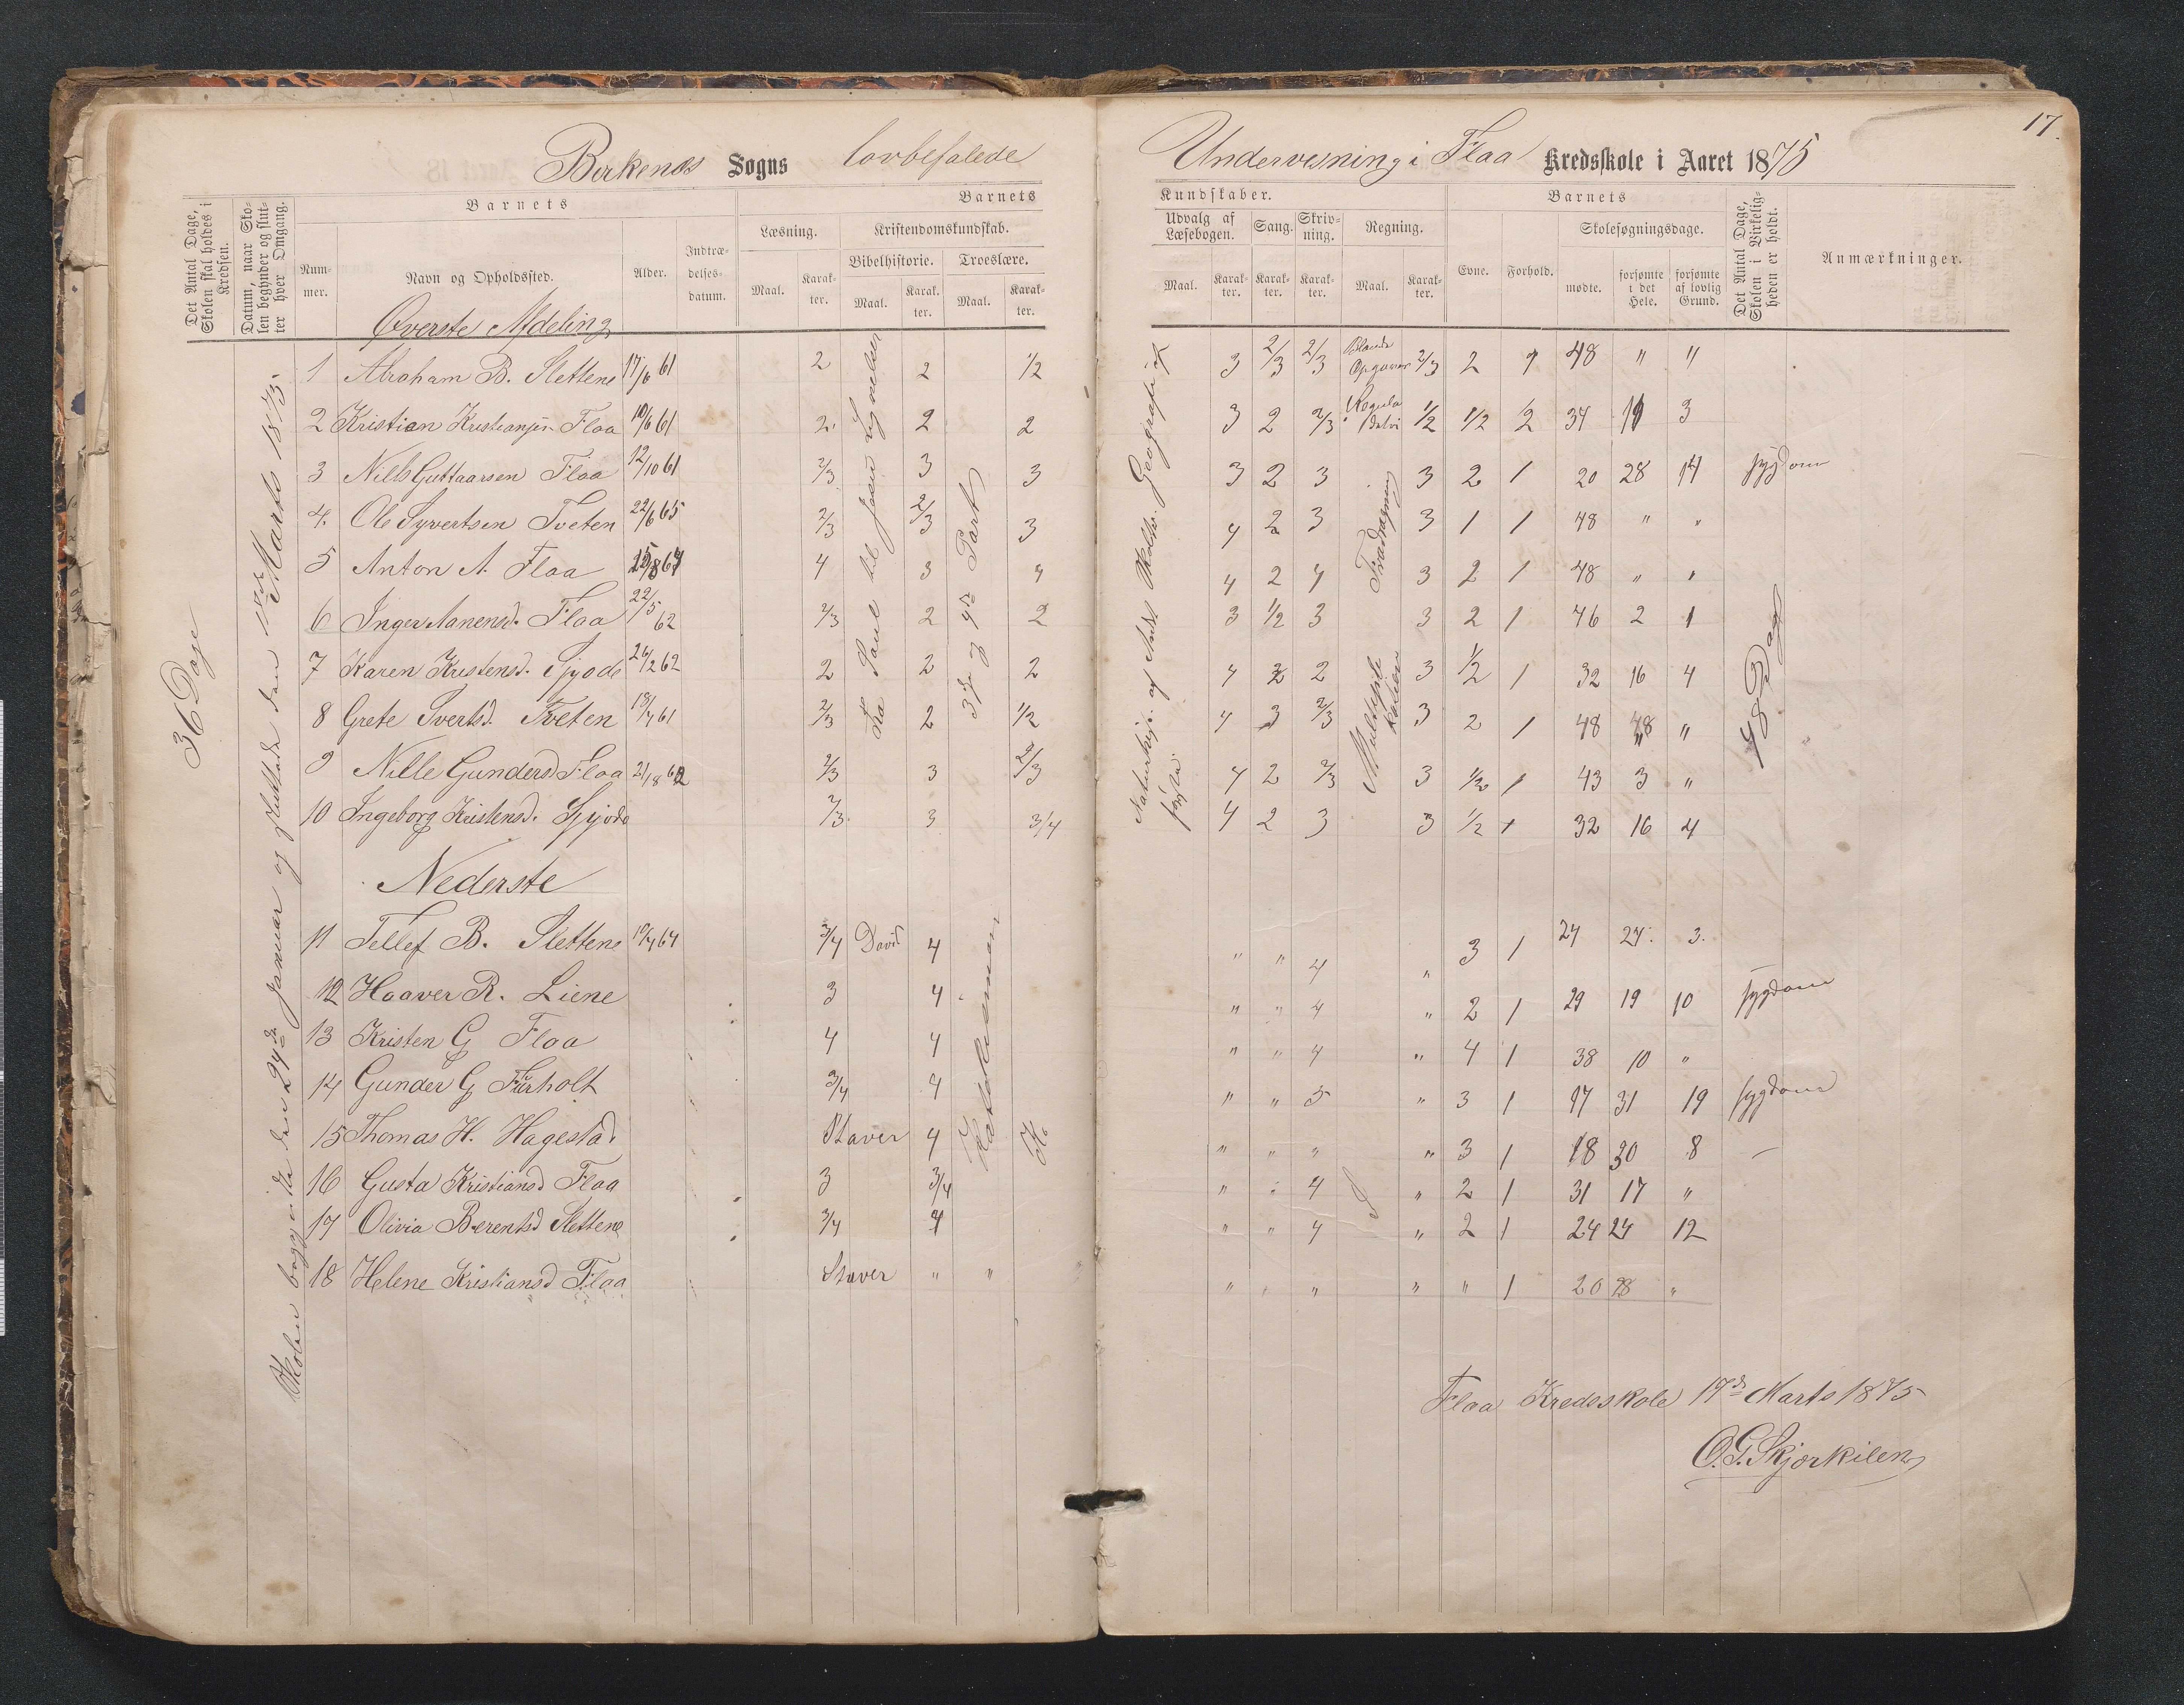 Birkenes Sogns lovbefalede Undervisning i Flaa Kredsskole i Aaret 1875
17.
Det Antal Dage, Skolen skal holdes i Kredsen.
Datum, naar Skolen begynder og slutter hver Omgang.
Barnets
Nummer.
Navn og Opholdssted.
Alder.
Indtrædelsesdatum.
Barnets
Læsning.
Maal.
Karakter.
Kristendomskundskab.
Bibelhistorie.
Maal.
Karakter.
Troeslære.
Maal.
Karakter.
Kundskaber.
Udvalg af Læsebogen.
Maal.
Karakter.
Sang.
Karakter.
Skrivning.
Karakter.
Regning.
Maal.
Karakter.
Barnets
Evne.
Forhold.
Skolesøgningsdage.
mødte.
forsømte i det Hele.
forsømte af lovlig Grund.
Det Antal Dage, Skolen i Virkeligheden er holdt.
Anmærkninger.
Øverste Afdeling
36 Dage
Skolen begyndte den 24de Januar og sluttede den Marts 1875.
1 Abraham B. Slettene 17/6 61 2 2 1/2 3 2/3 2/3 Blande Opgaver 2/3 2 48 " "
2 Kristian Kristiansen Flaa 10/6 61 2 2 2 3 2 2/3 Regula Detri 1/2 1/2 2 34 3
3 Nils Guttaarsen Flaa 12/10 61 2/3 3 3 3 2 3 3 2 1 20 28 14 sygdom
4. Ole Syvertsen Tveten 22/6 65 2/3 2/3 3 4 2 3 3 1 1 48 " "
5 Anton A. Flaa 4 3 4 4 2 4 3 2 1 48 " "
6 Inger Aanensd. Flaa 22/5 62 2/3 2 2 3 1/2 3 3 2 1 46 2 1
7 Karen Kristensd. 26/2 62 2 2 2 4 2 2 3 1/2 1 32 16 4
8 Grete Sverts. Tveten 18/4 61 2/3 2 1/2 4 3 2/3 3 2 1 48 "
9 Nille Gundersd Flaa 2/3 3 2/3 4 2 2/3 3 1/2 1 43 3 "
10 Ingeborg Kristensd. 2/3 3 3/4 4 2 3 3 1/2 1 32 16 4
Fra Saul til Jesu Lignelser
3de og 4de Part
Geografi
Tradragning
Multiplikation
48 Dage
Nederste
11 Tellef B. Slettene 10/4 64 3/4 David 4 " " 4 " 3 1 24 24 3.
12 Haaver R. Liene 3 4 " " 4 " 2 1 29 19 10 sygdom
13 Kristen G Flaa 4 4 " " 4 " 4 1 38 10 "
14 Gunder G 3/4 4 " " 5 " 3 1 17 31 19 sygdom
15 Thomas H. Hagestad Staver 4 " " " " 3 1 18 30 8 —
16 Gusta Kristiansd Flaa 3 3/4 " " 4 " 2 1 31 17 "
17 Olivia Berentsd Slettene 3/4 4 " " 4 " 2 1 24 24 12
18 Helene Kristiansd Flaa Staver " " " " " " " 1 20 28 "
Flaa Kredsskole 17de Marts 1875
O. G. Skjærkilen